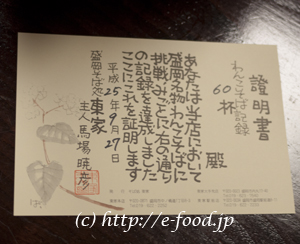 證明書
わんこそば記録
60杯
殿
あなたは当店において
盛岡名物わんこそばに
挑戦みごとに右の通り
の記録を達成しました
ここにこれを証明します
平成25年9月27日
盛岡そば処 東家
主人 馬場暁彦
(c) http://e-food.jp